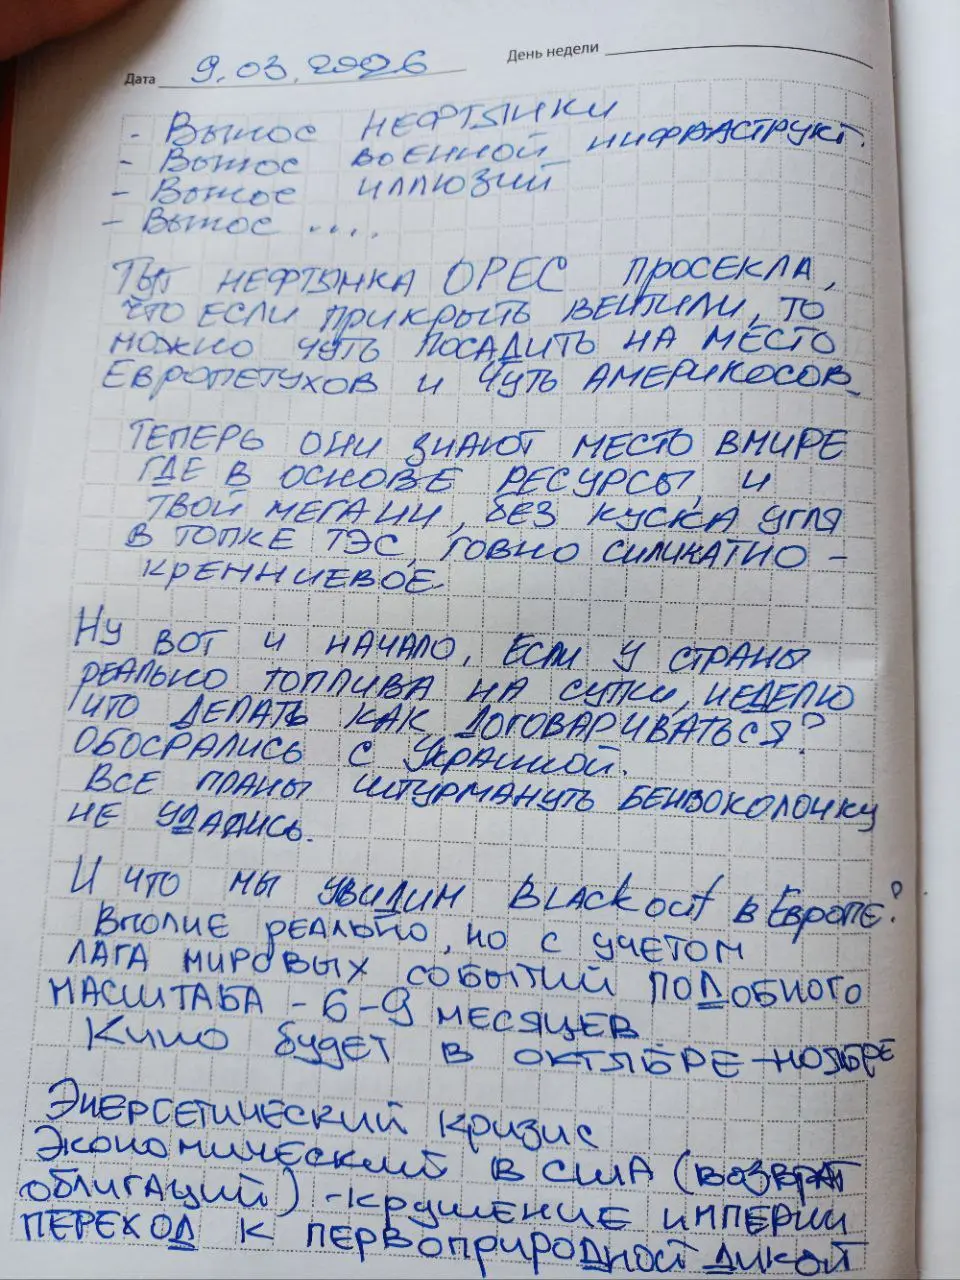 Дата 9.03.2026 День недели
- Вынос нефтянки
- Вынос военной инфраструкт.
- Вынос иллюзий
- Вынос ....
Тут нефтянка ОРЕС просекла,
что если прикрыть вентили, то
можно чуть посадить на место
Европетухов и чуть америкосов
Теперь они знают место в мире
где в основе ресурсы, и
твой мега ИИ, без куска угля
в топке ТЭС, говно силикатно -
кремниевое
Ну вот и начало, если у страны
реально топлива на сутки, неделю
что делать как договариваться?
Обосрались с Украиной.
Все планы штурмануть бензоколонку
не удались.
И что мы увидим Blackout в Европе?
Вполне реально, но с учетом
лага мировых событий подобного
масштаба - 6-9 месяцев
Кино будет в октябре-ноябре
Энергетический кризис
Экономический в США (возврат
облигаций) - крушение империи
переход к первоприродной дикой